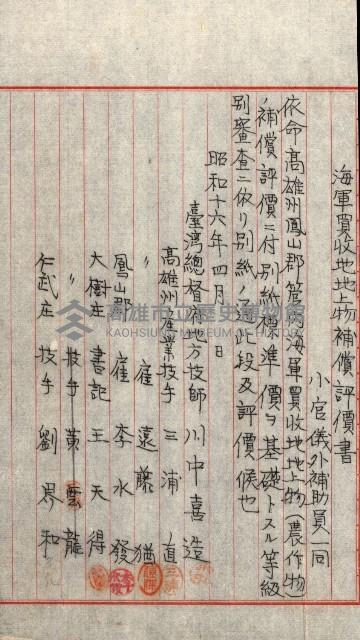 海軍買収地地上物補償評價書
小官儀外補助員一同
依命高雄州鳳山郡管内海軍買收地地上物(農作物)
補償評價ニ付別紙標準價ヲ基礎トスル等級
別審查ニ依リ別紙ノ通此段及評價候也
昭和十六年四月 日
臺灣總督府地方技師 川中喜造
高雄州產業技手 三浦直
〃 雇 遠藤猶
鳳山郡 雇 李水發
大樹庄 書記 王天得
〃 技手 黃雲龍
仁武庄 技手 劉界和
高雄市立歷史博物館
KAOHSIUNG MUSEUM OF HISTORY